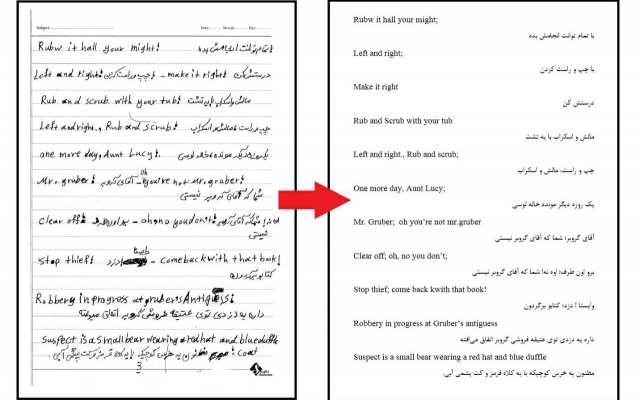 Rubw it hall your might!
Left and right! با چپ و راست کردن - make it right! درستش کن
Rub and scrub with your tub!
Left and right., Rub and scrub!
one more day, Aunt Lucy!
Mr. gruber! آقای گروبر - oh you're not mr. gruber!
شما که آقای گروبر نیستی
clear off! - oh no you don't!
نیستی
Stop thief! دزد - come back with that book!
Robbery in progress at gruber's Antiguess!
داره یه دزدی توی عتیقه فروشی گروبر اتفاق میوفته
suspect is a small bear wearing a red hat and blue duffle
coat
3
Rubw it hall your might;
با تمام توانت انجامش بده
Left and right;
با چپ و راست کردن
Make it right
درستش کن
Rub and Scrub with your tub
مالش و اسکراب با یه تشت
Left and right., Rub and scrub;
چپ و راست، مالش و اسکراب
One more day, Aunt Lucy;
یک روزه دیگر مونده خاله لوسی
Mr. Gruber; oh you're not mr.gruber
آقای گروبر؛ شما که آقای گروبر نیستی
Clear off; oh, no you don't;
برو اون طرف؛ اوه نه! شما که آقای گروبر نیستی
Stop thief; come back kwith that book!
وایستا ! دزد؛ کتابو برگردون
Robbery in progress at Gruber's antiguess
داره یه دزدی توی عتیقه فروشی گروبر اتفاق می‌افته
Suspect is a small bear wearing a red hat and blue duffle
مظنون یه خرس کوچیکه با یه کلاه قرمز و کت پشمی آبی.